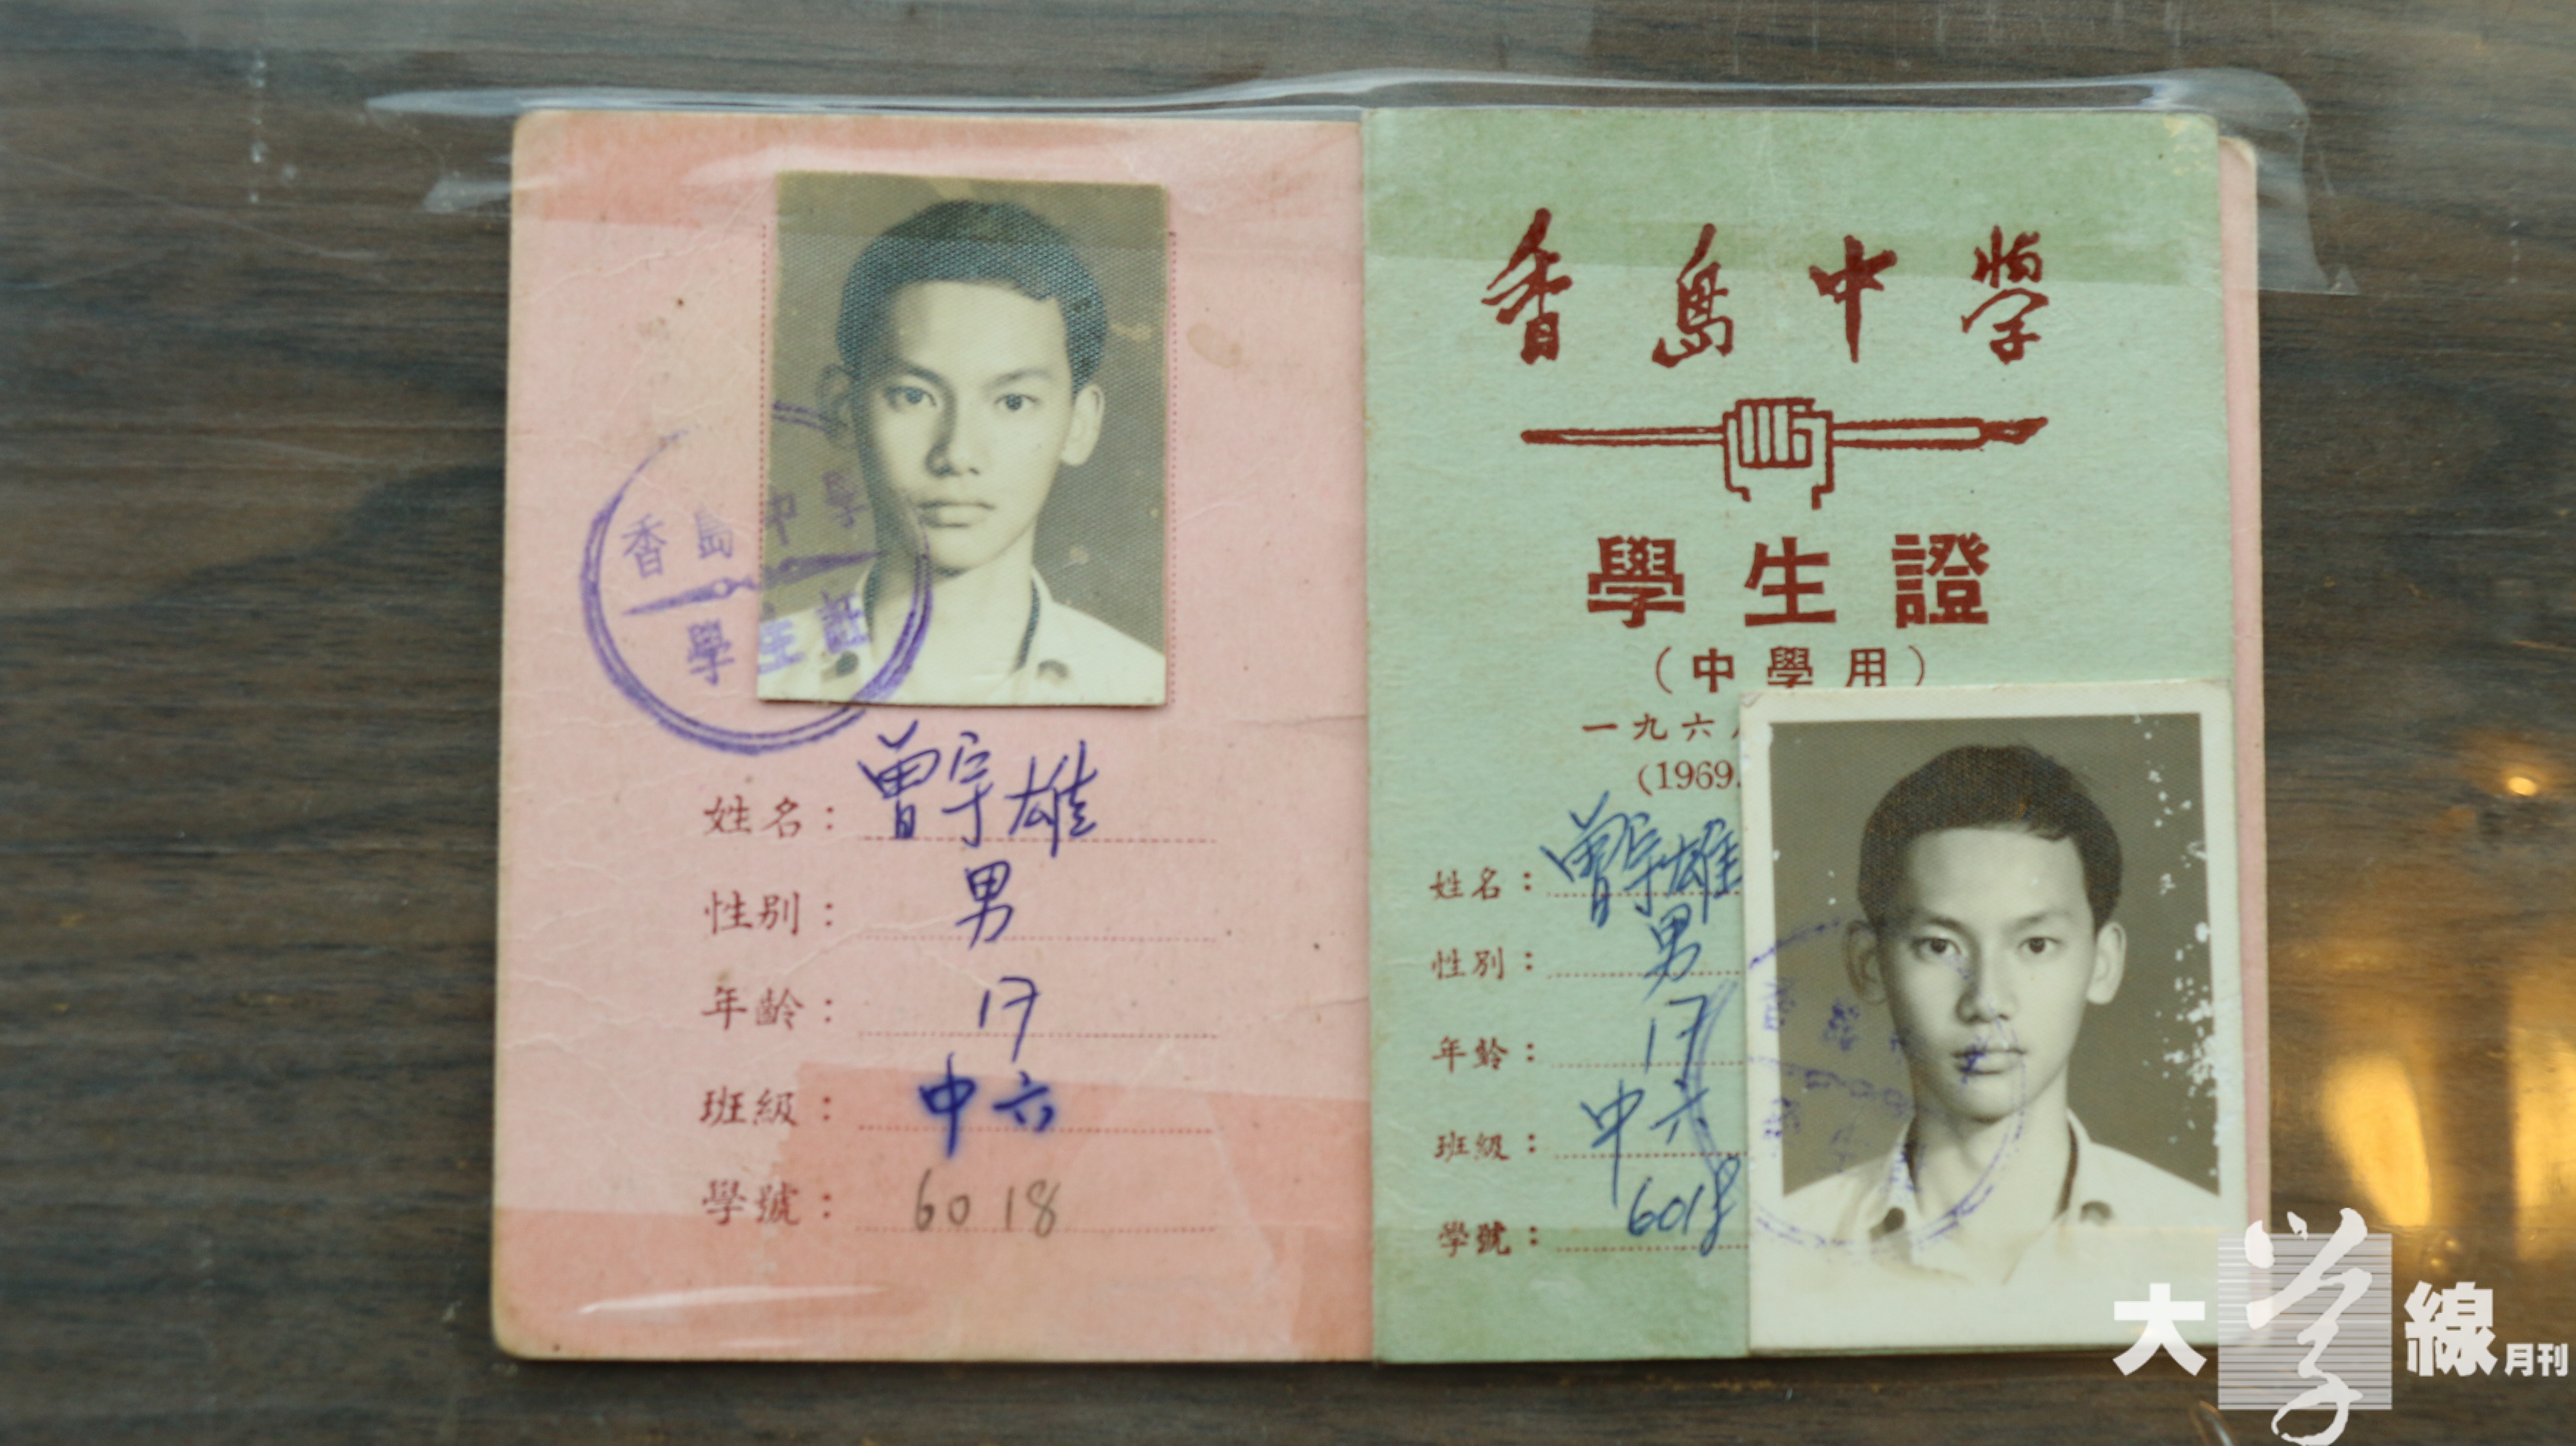 香島中學
學生證
姓名：曾宇雄
性別：男
年齡：17
班級：中六
學號：6018
香島中學
學生證
（中學用）
一九六
(1969.
姓名：曾宇雄
性別：男
年齡：17
班級：中六
學號：6018
大學線月刊